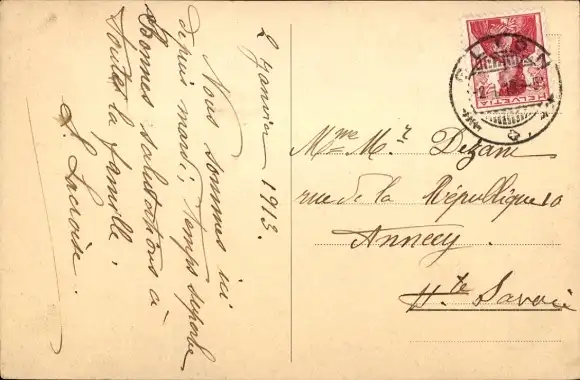 2 Janvier 1913.
Nous sommes ici
depuis mardi; temps superbe
Bonnes salutations à
toutes la famille.
L Lacroix.
Mme Mr
rue de la République 10
Annecy.
Hte Savoie
HELVETIA